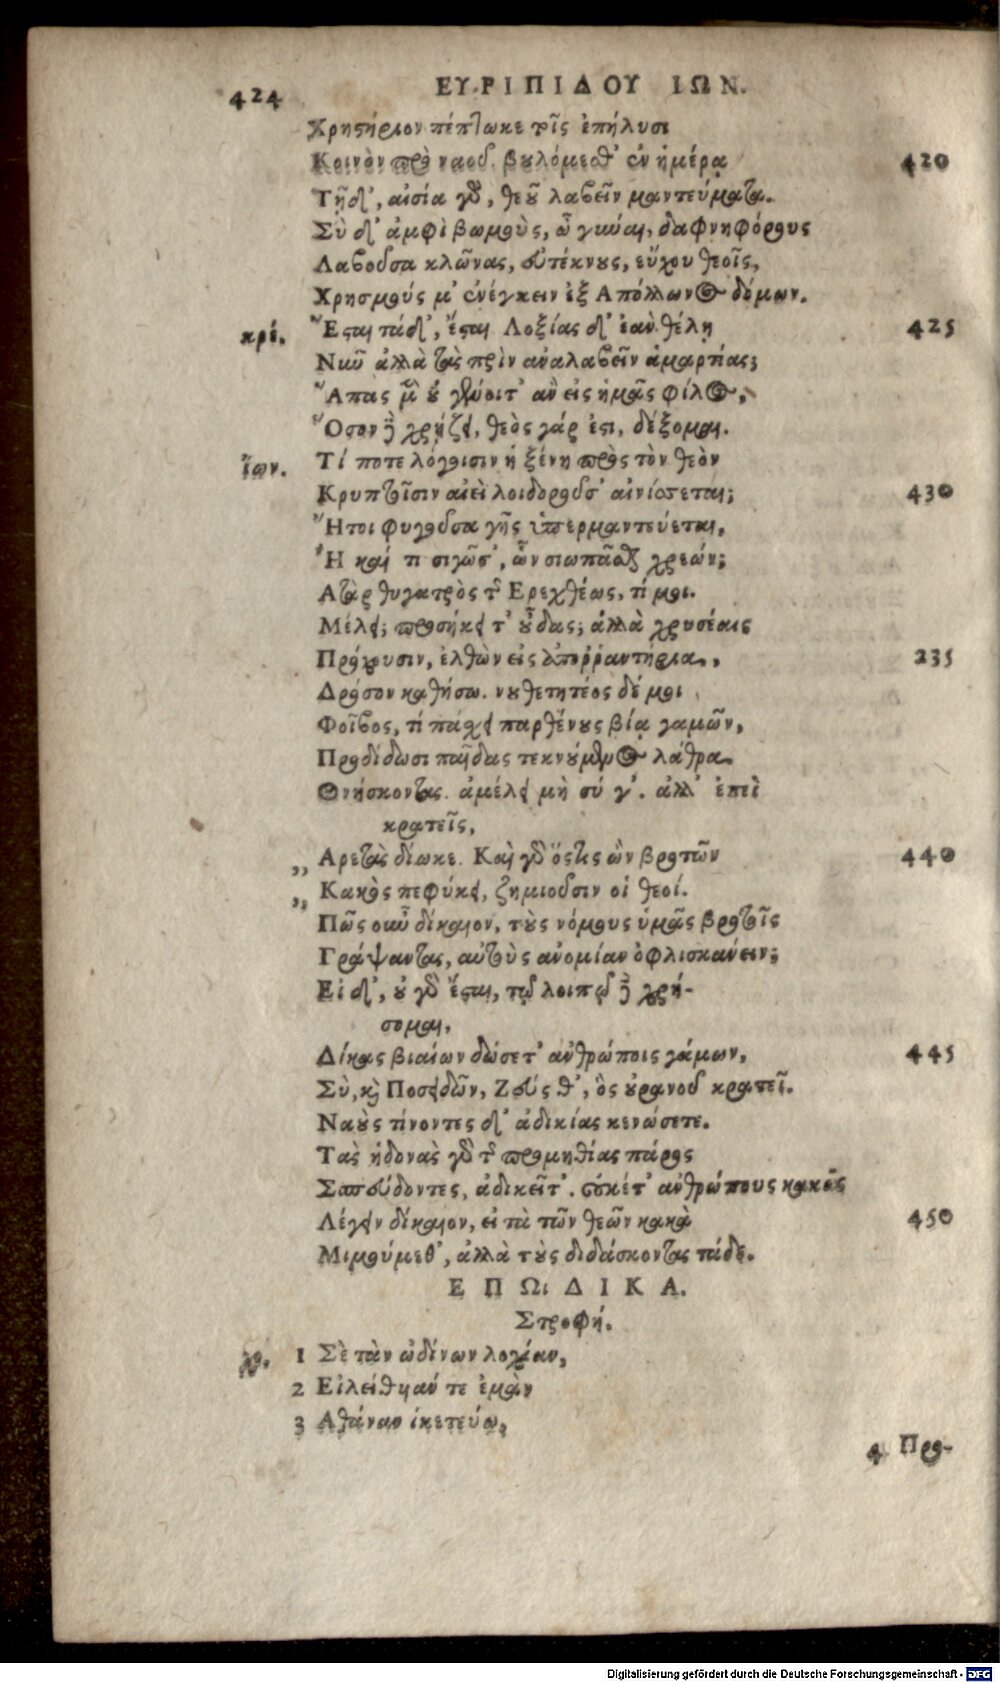 424 ΕΥΡΙΠΙΔΟΥ ΙΩΝ.
Χρηστήριον πέπτωκε τοῖς ἐπήλυσι
Κοινὸν πρὸ ναοῦ. βούλομαι δ' ἐν ἡμέρᾳ 420
Τῇδ', αἰσία γὰρ, θεοῦ λαβεῖν μαντεύματα.
Σὺ δ' ἀμφὶ βωμοὺς, ὦ γύναι, δαφνηφόρους
Λαβοῦσα κλῶνας, εὐτέκνους, εὔχου θεοῖς,
Χρησμούς μ' ἐνέγκειν ἐξ Απόλλωνος δόμων.
κρέ. Ἔσται τάδ', ἔσται Λοξίας δ' ἐὰν θέλῃ 425
Νῦν ἀλλὰ τὰς πρὶν ἀναλαβεῖν ἁμαρτίας;
Ἅπας μὲν οὐ γένοιτ' ἂν εἰς ἡμᾶς φίλος,
Ὅσον δὲ χρῄζει, θεὸς γάρ ἐστι, δέξομαι.
ἴων. Τί ποτε λόγοισιν ἡ ξένη πρὸς τὸν θεὸν
Κρυπτοῖσιν αἰεὶ λοιδοροῦσ' αἰνίσσεται; 430
Ἤτοι φυγοῦσα γῆς ὑπερμαντεύεται,
Ἢ καί τι σιγῶσ', ὧν σιωπᾶσθαι χρεών;
Ατὰρ θυγατρὸς τῆς Ερεχθέως, τί μοι.
Μέλει; προσήκει τ' οὐδας; ἀλλὰ χρυσέαις
Πρόχουσιν, ἐλθὼν εἰς ἀποῤῥαντήρια, 235
Δρόσον καθήσω. νουθετητέος δέ μοι
Φοῖβος, τί πάσχει παρθένους βίᾳ γαμῶν,
Προδίδωσι παῖδας τεκνούμενος λάθρα
Θνήσκοντας ἀμέλει μὴ σύ γ'. ἀλλ' ἐπεὶ
κρατεῖς,
„ Αρετὰς δίωκε. Καὶ γὰρ ὅστις ὢν βροτῶν 440
„ Κακὸς πεφύκει, ζημιοῦσιν οἱ θεοί.
Πῶς οὖν δίκαιον, τοὺς νόμους ὑμᾶς βροτοῖς
Γράψαντας, αὐτοὺς ἀνομίαν ὀφλισκάνειν;
Εἰ δ', οὐ γὰρ ἔσται, τῷ λοιπῷ δὲ χρή-
σομαι,
Δίκας βιαίων δώσετ' ἀνθρώποις γάμων, 445
Σὺ, καὶ Ποσειδῶν, Ζεύς θ', ὃς οὐρανοῦ κρατεῖ.
Ναοὺς τίνοντες δ' ἀδικίας κενώσετε.
Τὰς ἡδονὰς γὰρ τῆς προμηθίας πάρος
Σπεύδοντες, ἀδικεῖτ'. οὐκέτ' ἀνθρώπους κακῶς
Λέγειν δίκαιον, εἰ τὰ τῶν θεῶν κακὰ 450
Μιμούμεθ', ἀλλὰ τοὺς διδάσκοντας τάδε.
ΕΠΩιΔΙΚΑ.
Στροφή.
χο. 1 Σὲ τὰν ὠδίνων λοχίαν,
2 Εἰλείθυιάν τε ἐμὰν
3 Αθάναν ἱκετεύω,
4 Προ-
Digitalisierung gefördert durch die Deutsche Forschungsgemeinschaft - DFG